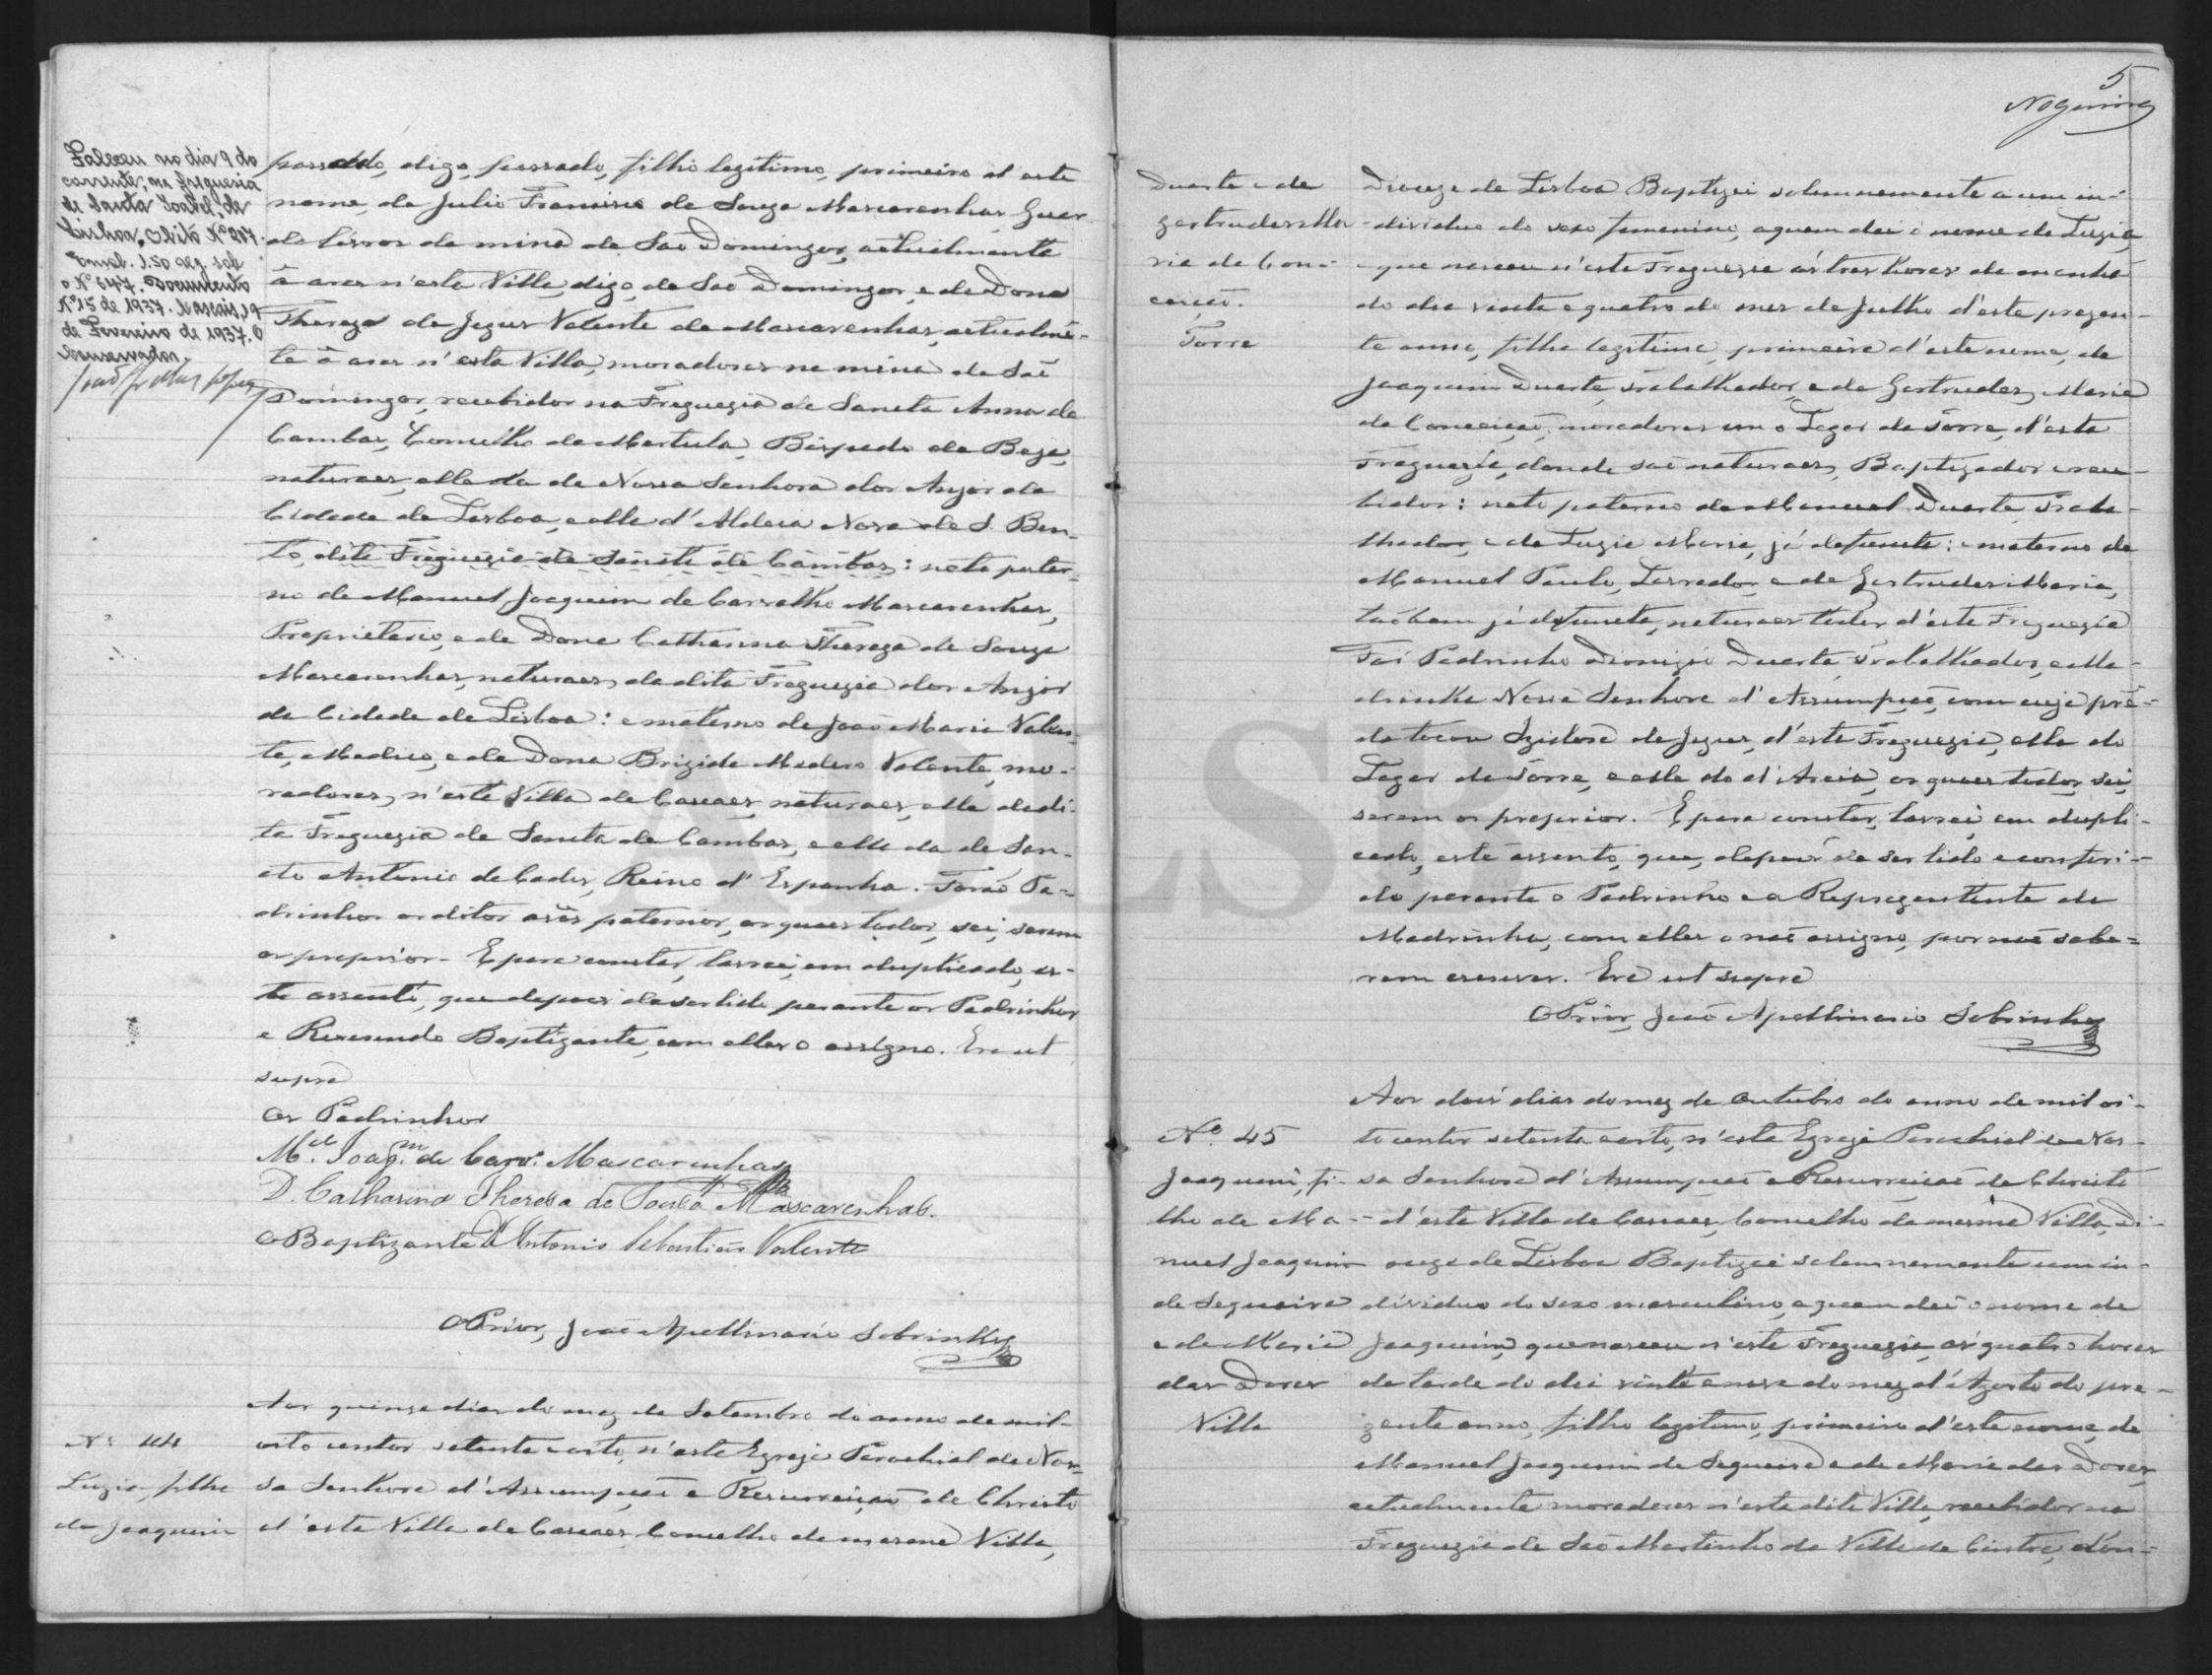 Falleceu no dia 9 do
corrente, na freguesia
de Santa Isabel, de
Lisboa. Obito Nº 207.
Emol. 1.50 reg. sob
o Nº 547. Documento
Nº 15 de 1937. Cascais, 19
de Fevereiro de 1937. O
Conservador,
passado, digo, passado, filho legitimo, primeiro d'este
nome, de Julio Francisco de Souza Mascarenhas, Guar-
da livros da mina de São Domingos, actualmente
á ares n'esta Villa, digo, de São Domingos, e de Dona
Thereza de Jezus Valente de Mascarenhas, actualmen-
te á ares n'esta Villa, moradores na mina de São
Domingos, recebidos na Freguezia de Sancta Anna de
Cambas, Concelho de Mertula, Bispado de Beja,
naturaes, elle da de Nossa Senhora dos Anjos da
Cidade de Lisboa, e ella d'Aldeia Nova de S. Ben-
to, dita Freguezia de Sancta de Cambas: neto pater-
no de Manuel Joaquim de Carvalho Mascarenhas,
Proprietario, e de Dona Catharina Thereza de Souza
Mascarenhas, naturaes da dita Freguezia dos Anjos
da Cidade de Lisboa: e materno de João Maria Valen-
te, Medico, e de Dona Brizida Madero Valente, mo-
radores, n'esta Villa de Cascaes, naturaes, elle da di-
ta Freguezia de Sancta de Cambas, e ella da de San-
cto Antonio de Cadis, Reino d'Espanha. Forão Pa-
drinhos os ditos avós paternos, os quaes todos, sei, serem
os proprios. E para constar, lavrei, em duplicado, es-
te assento, que depois de ser lido perante os Padrinhos
e Reverendo Baptizante, com elles o assigno. Era ut
supra
Os Padrinhos
Mel. Joaqm. de Carvo. Mascarenhas
D. Catharina Thereza de Souza Mascarenhas.
O Baptizante Pe Antonio Sebastião Valente
O Prior, João Apollinario Sobrinho
Aos quinze dias do mez de Setembro do anno de mil
Nº 44 oito centos setenta e oito, n'esta Egreja Parochial de Nos-
Luzia, filha sa Senhora d'Assumpção e Resurreição de Christo
de Joaquim d'esta Villa de Cascaes, Concelho da mesma Villa,
5
Nogueira
Duarte e de Dioceze de Lisboa Baptizei solemnemente a um in-
Gertrudes Ma- dividuo do sexo femenino, a quem dei o nome de Luzia,
ria da Con- que nasceu n'esta Freguezia ás tres horas da manhã
ceição. do dia vinte e quatro do mez de Julho d'este prezen-
Torre te anno, filha legitima, primeira d'este nome, de
Joaquim Duarte, trabalhador, e de Gertrudes Maria
da Conceição, moradores em o Logar da Torre, d'esta
Freguezia, donde são naturaes, Baptizados e rece-
bidos: neta paterna de Manuel Duarte, Traba-
lhador, e de Luzia Maria, já defuncta: e materna de
Manuel Paulo, Serrador, e de Gertrudes Maria,
tãobem já defuncta, naturaes todos d'esta Freguezia
Foi Padrinho Dionizio Duarte, Trabalhador, e Ma-
drinha Nossa Senhora d'Assumpção, com cuja prê-
da tocou Izidora de Jezus, d'esta Freguezia, elle do
Logar da Torre, e ella do d'Areia, os quaes todos, sei,
serem os proprios. E para constar, lavrei, em dupli-
cado, este assento, que, depois de ser lido e conferi-
do perante o Padrinho e a Reprezentante da
Madrinha, com elles o não assigno, por não sabe-
rem escrever. Era ut supra
O Prior, João Apollinario Sobrinho
Aos dois dias do mez de Outubro do anno de mil oi-
Nº 45 to centos setenta e oito, n'esta Egreja Parochial de Nos-
Joaquim, fi- sa Senhora d'Assumpção e Resurreição de Christo
lho de Ma- d'esta Villa de Cascaes, Concelho da mesma Villa, Di-
nuel Joaquim oceze de Lisboa Baptizei solemnemente um in-
de Sequeira dividuo do sexo masculino, a quem dei o nome de
e de Maria Joaquim, que nasceu n'esta Freguezia, ás quatro horas
das Dores da tarde do dia vinte e nove do mez d'Agosto do pre-
Villa zente anno, filho legitimo, primeiro d'este nome, de
Manuel Joaquim de Sequeira e de Maria das Dores,
actualmente moradores n'esta dita Villa, recebidos na
Freguezia de São Martinho da Villa de Cintra, don-
ADLSB